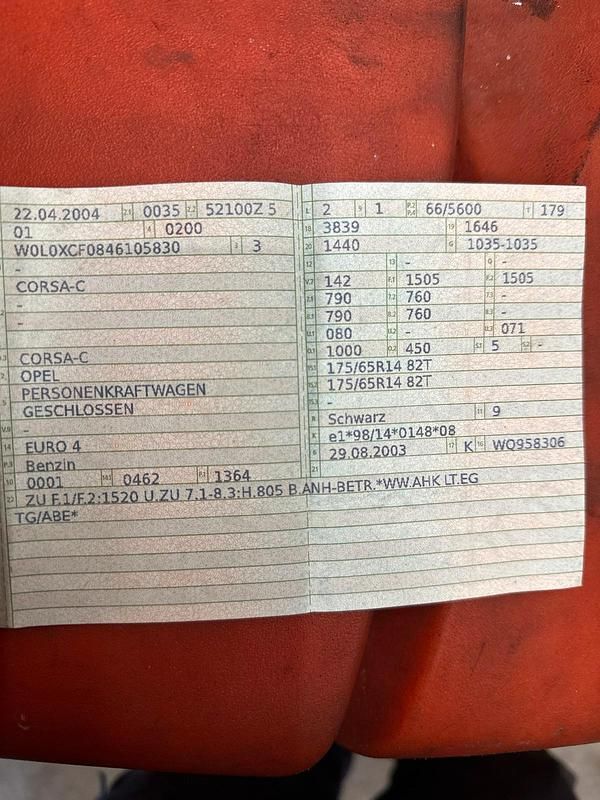 22.04.2004 2.1 0035 2.2 52100Z 5
01 4 0200
W0L0XCF0846105830 3 3
-
CORSA-C
-
-
CORSA-C
OPEL
PERSONENKRAFTWAGEN
GESCHLOSSEN
-
EURO 4
Benzin
0001 0462 1364
L 2 9 1 P.2 P.4 66/5600 T 179
18 3839 19 1646
20 1440 G 1035-1035
12 13 - Q -
V.7 142 F.1 1505 F.2 1505
7.1 790 7.2 760 7.3 -
8.1 790 8.2 760 8.3 -
U.1 080 U.2 - U.3 071
O.1 1000 O.2 450 S.1 5 S.2 -
15.1 175/65R14 82T
15.2 175/65R14 82T
15.3 -
R Schwarz 11 9
K e1*98/14*0148*08
6 29.08.2003 17 K 16 WQ958306
21
22 ZU F.1/F.2:1520 U.ZU 7.1-8.3:H.805 B.ANH-BETR.*WW.AHK LT.EG
TG/ABE*